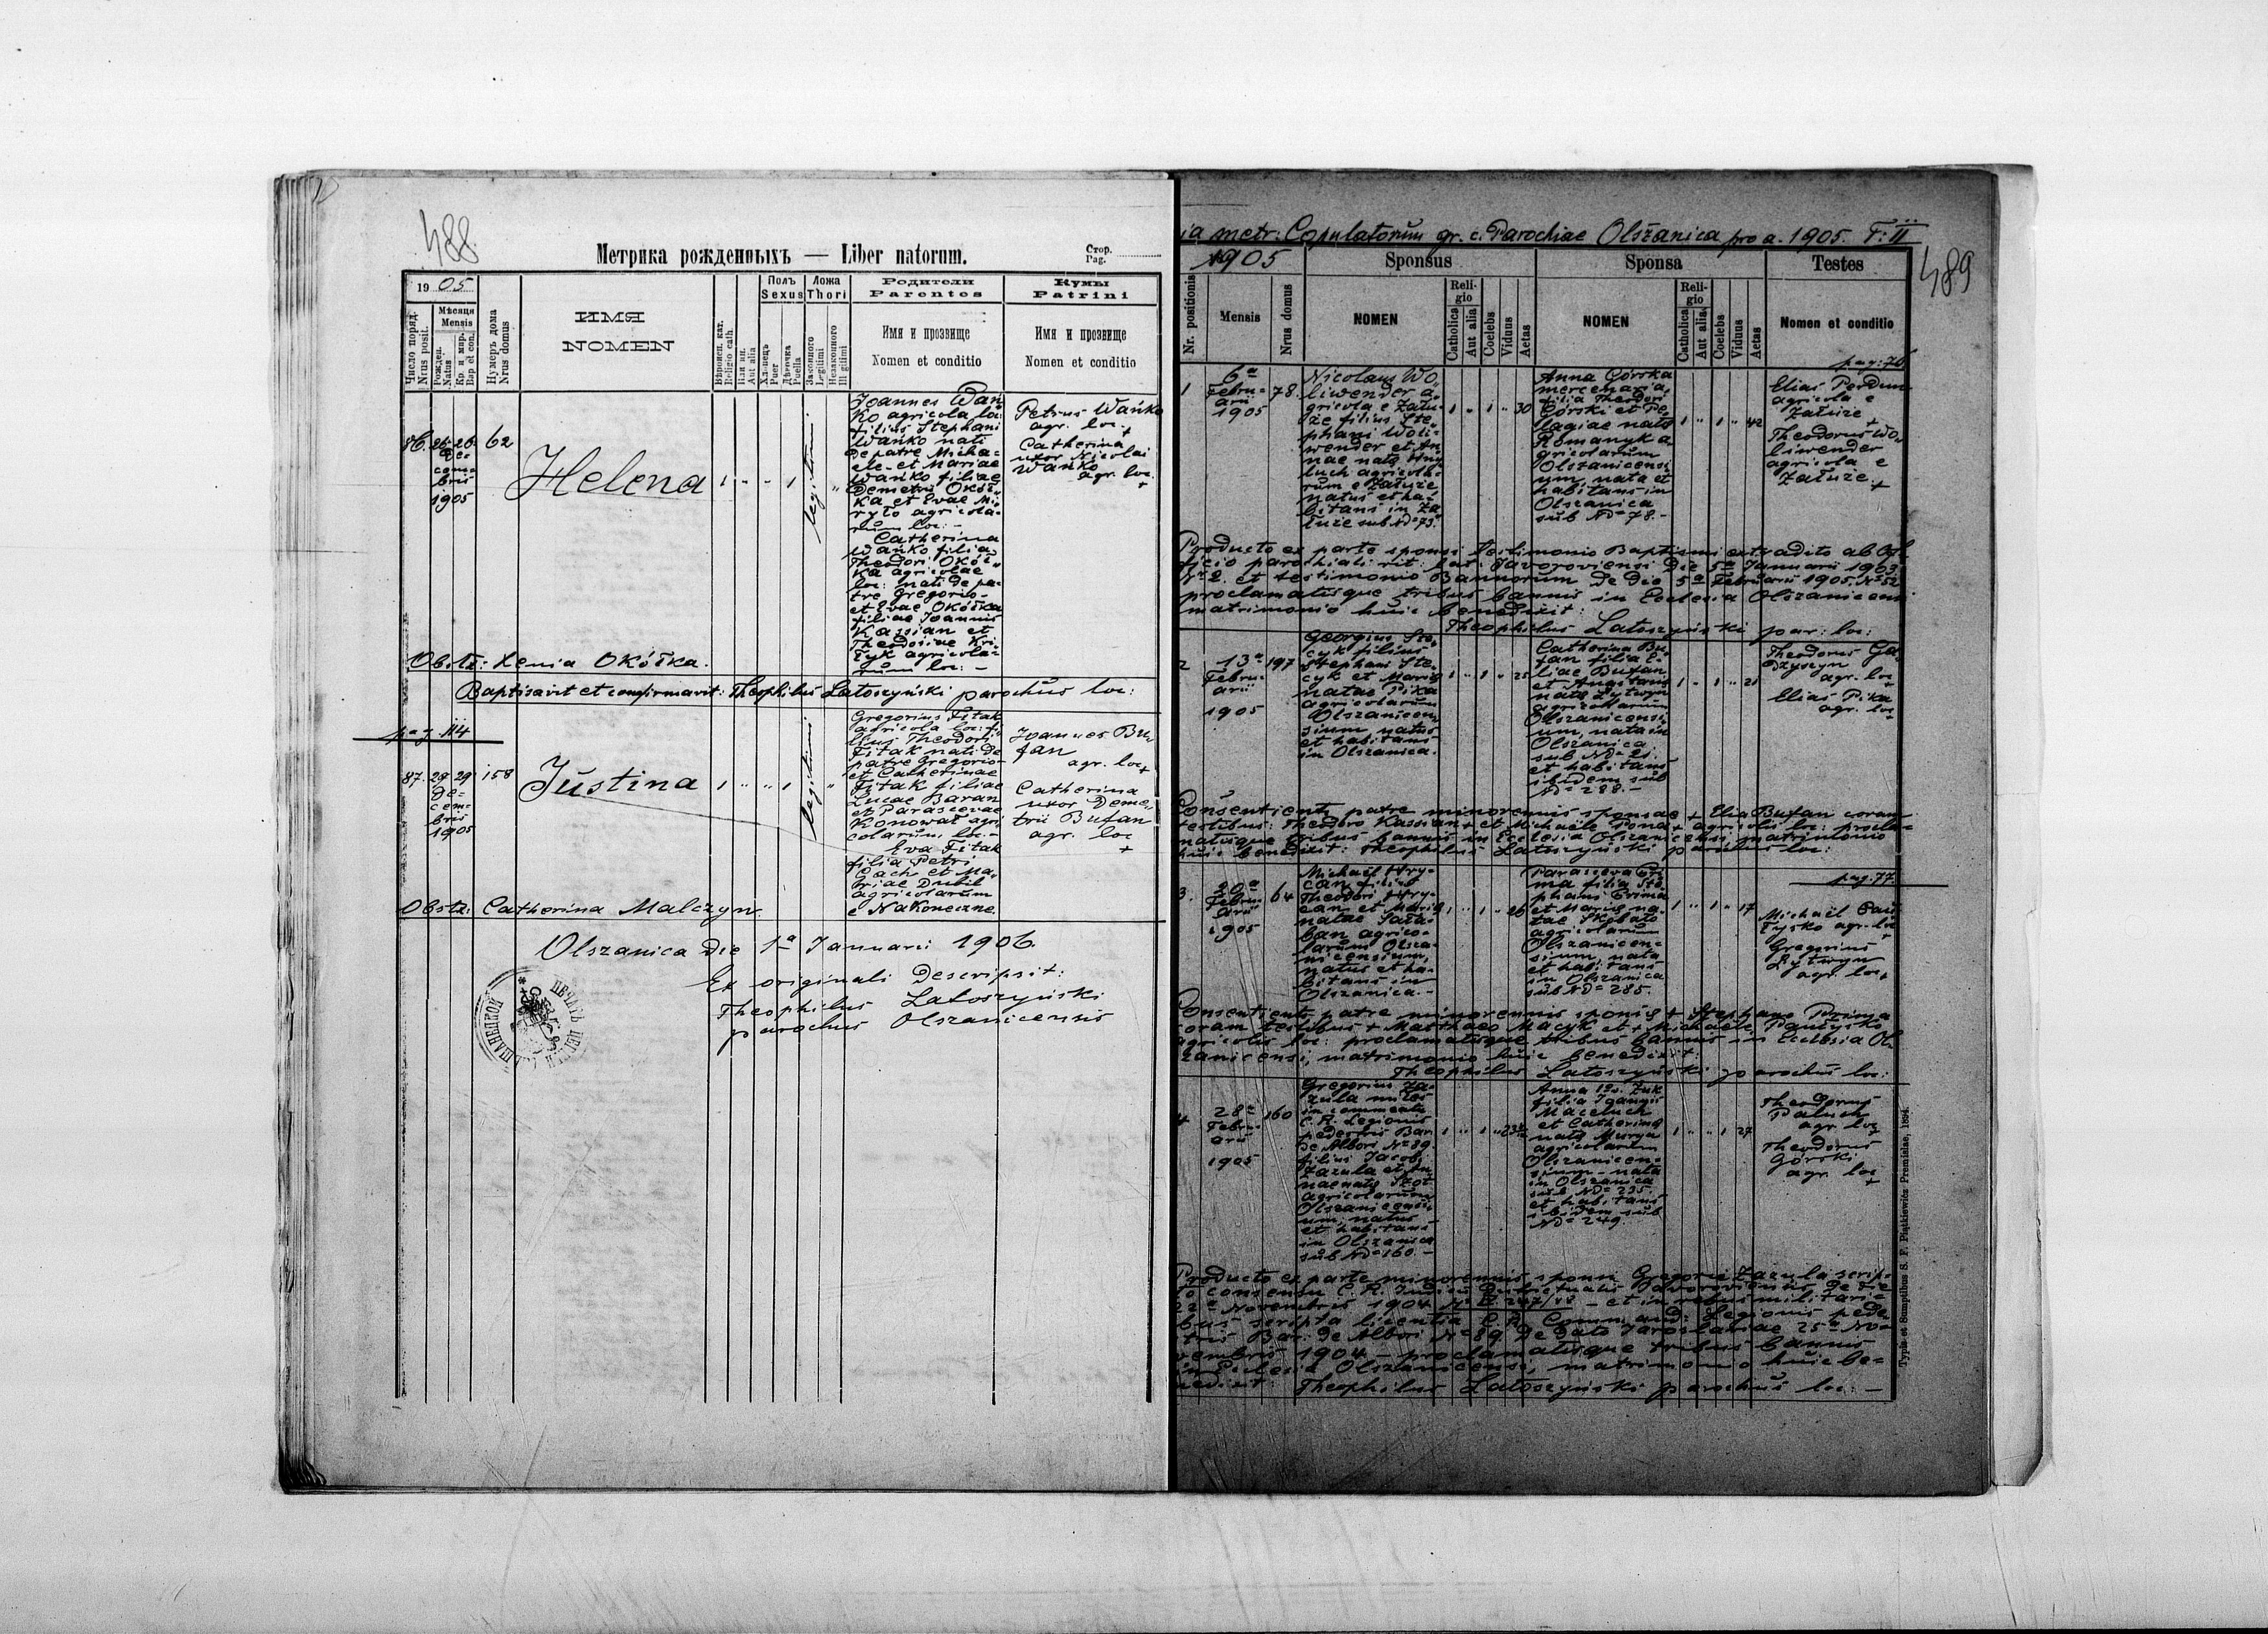 488.
Метрика рожденныхъ — Liber natorum.
Стор.
Pag.
19 05
Число поряд.
Nrus posit.
Мѣсяця
Mensis
Рожден.
Natus
Кр. и мѵр.
Bap et con.
Нумеръ дома
Nrus domus
ИМЯ
NOMEN
Вѣроисп. кат.
Religio cath.
Или ин.
Aut alia
Полъ
Sexus
Хлопецъ
Puer
Дѣвочка
Puella
Ложа
Thori
Законного
Legitimi
Незаконного
Illegitimi
Родители
Parentes
Имя и прозвище
Nomen et conditio
Кумы
Patrini
Имя и прозвище
Nomen et conditio
86. 26 26
De-
cem-
bris
1905
62
Helena
1 " " 1
legitimi
Joannes Wań-
ko agricola loc:
filius Stephani
Wańko nati
de patre Micha-
ele et Mariae
Wańko filiae
Demetrii Okół-
ka et Evae
agricola-
rum loc: -
Catherina
Wańko filia
Theodori Okół-
ka agricolae
loc: nati de pa-
tre Gregorio
et Evae Okółka
filiae Joannis
Kassian et
Theodosiae
agricola-
rum loc: -
Petrus Wańko
agr. loc.
+
Catherina
uxor Nicolai
Wańko
agr. loc.
+
Obstx: Xenia Okółka.
Baptisavit et confirmavit: Theophilus Latoszyński parochus loc:
pag. 114
87. 29 29
De-
cem-
bris
1905
158
Justina
1 " " 1
legitimi
Gregorius Fitak
agricola loc: fi-
lius Theodori
Fitak nati de
patre Gregorio
et Catherinae
Fitak filiae
Lucae Baran
et Parascevae
Konował agri-
colarum loc. -
Eva Fitak
filia Petri
Pach et Ma-
riae Dubil
agricolarum
e Nakoneczne.
Joannes Bu-
fan
agr. loc.
+
Catherina
uxor Deme-
trii Bufan
agr. loc
+
Obstx: Catherina Malczyn
Olszanica die 1a Januarii 1906.
Ex originali descripsit:
Theophilus Latoszyński
parochus Olszanicensis
489
metr: Copulatorum gr. c. Parochiae Olszanica pro a. 1905. T: II
1905
Sponsus
Sponsa
Testes
Nr. positionis
Mensis
Nrus domus
NOMEN
Religio
Catholica
Aut alia
Coelebs
Viduus
Aetas
NOMEN
Religio
Catholica
Aut alia
Coelebs
Viduus
Aetas
Nomen et conditio
pag: 76
1
6a
Febru-
arii
1905
78.
Nicolaus Wo-
liwender a-
gricola e Zału-
że filius Ste-
phani Woli-
wender et An-
nae natae
agricola-
rum e Załuże
natus et ha-
bitans in Za-
łuże sub Nd=73.
1 " 1 " 30
Anna Górska
mercenaria
filia Theodori
Górski et Pe-
lagiae natae
Romanyk a-
gricolarum
Olszanicensi-
um, nata et
habitans in
Olszanica
sub Nd=78. -
1 " 1 " 42
Elias Perdun
agricola e
Załuże
+
Theodorus Wo-
liwender
agricola e
Załuże.
+
Producto ex parte sponsi testimonio Baptismi extradito ab Of-
ficio parochiali rit: lat: Javoroviensi die 5a Januarii 1903
Nr 2. et testimonio Bannorum de die 5a Februarii 1905. No 52
proclamatisque tribus bannis in Ecclesia Olszanicensi
matrimonio huic benedixit:
Theophilus Latoszyński par: loc:
2
13a
Febru-
arii
1905
197
Georgius Ste-
cyk filius
Stephani Ste-
cyk et Mariae
natae Pika
agricolarum
Olszanicen-
sium, natus
et habitans
in Olszanica.
1 " 1 " 25
Catherina Bu-
fan filia E-
liae Bufan
et Anastasiae
natae Łytwyn
agricolarum
Olszanicensi-
um, nata in
Olszanica
sub Nd=21.
et habitans
ibidem sub
Nd=288. -
1 " 1 " 21
Theodorus
agr. loc
+
Elias Pika
agr. loc
+
Consentiente patre minorennis sponsae + Elia Bufan coram
testibus: Theodoro Kassian + et Michaële Pona + agricolis loc: procla-
matisque tribus bannis in Ecclesia Olszanicensi matrimonio
huic benedixit: Theophilus Latoszyński parochus loc:
pag. 77.
3.
20a
Febru-
arii
1905
64
Michaël Hry-
can filius
Theodori Hry-
can et Mariae
natae
agrico-
larum Olsza-
nicensium,
natus et ha-
bitans in
Olszanica. -
1 " 1 " 26
Parasceva Pri-
ma filia Ste-
phani Prima
et Mariae na-
tae
agricolarum
Olszanicen-
sium, nata
et habitans
in Olszanica
sub Nd=285.
1 " 1 " 17
Michaël Pau-
łyśko agr. loc
+
Gregorius
Łytwyn
agr. loc
+
Consentiente patre minorennis sponsae + Stephano Prima
coram testibus + Matthaeo Macyk et + Michaële Paułyśko
agricolis loc: proclamatisque tribus bannis in Ecclesia Ol-
szanicensi, matrimonio huic benedixit:
Theophilus Latoszyński parochus loc:
4
28a
Febru-
arii
1905
160
Gregorius Za-
zula miles
in
C. R. Legionis
pedestris Bar.
de Albori No 89
filius Jacobi
Zazula et An-
nae natae
agricolarum
Olszanicensi-
um, natus
et habitans
in Olszanica
sub Nd=160. -
Anna 1o v. Żuk
filia Joannis
Maceluch
et Catherinae
natae
agricolarum
Olszanicen-
sium - nata
in Olszanica
sub Nd=235.
et habitans
ibidem sub
Nd=249.
1 " " 1 27
Theodorus
Paluch
agr. loc
+
Theodorus
Górski
agr. loc
+
Producto ex parte minorennis sponsi Gregorii Zazula scrip-
to consensu C. R. Judicii Districtualis Javoroviensis de die
Novembris 1904 - et in rebus militari-
bus scripta licentia C. R. Command: Legionis pede-
stris Bar. de Albori No 89 de dato Jaroslaviae 25a No-
vembris 1904 - proclamatisque tribus bannis
in Ecclesia Olszanicensi, matrimonio huic be-
nedixit: Theophilus Latoszyński parochus loc: -
Typis et Sumptibus S. F. Piątkiewicz Premisliae, 1894.